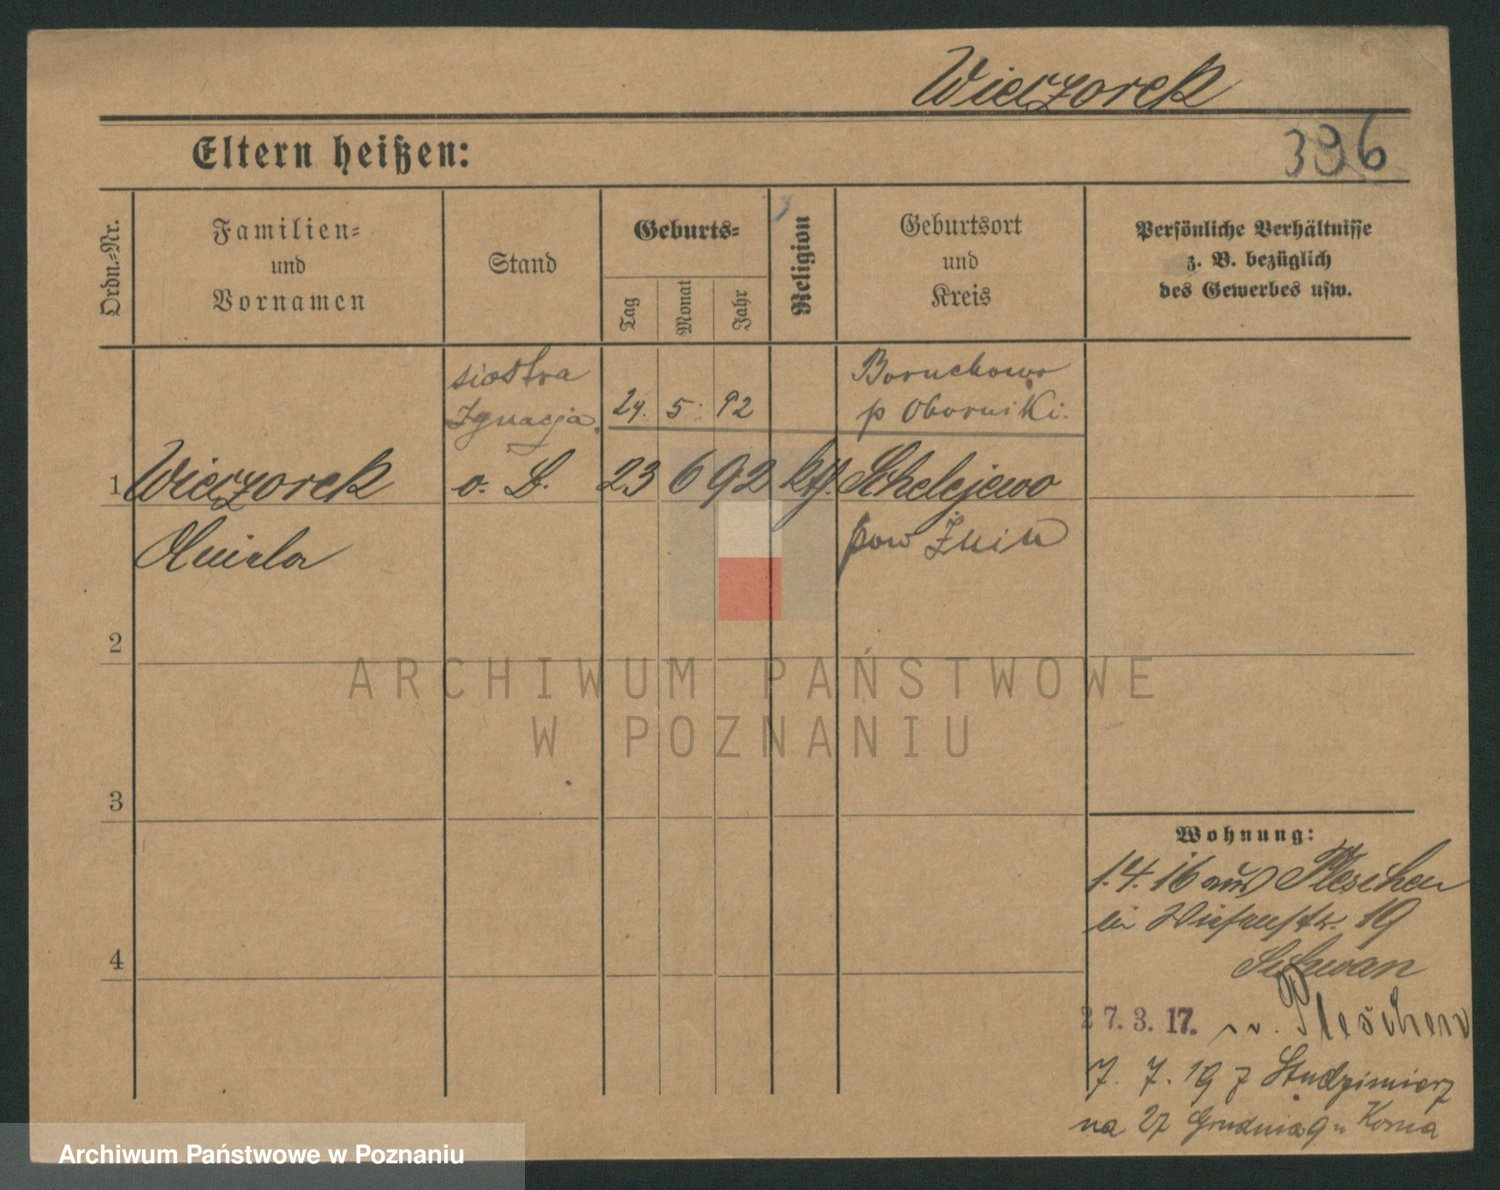 Wieczorek
396
Eltern heißen:
Ordn.-Nr.
Familien-
und
Vornamen
Stand
Geburts-
Tag
Monat
Jahr
Religion
Geburtsort
und
Kreis
Persönliche Verhältnisse
z. B. bezüglich
des Gewerbes usw.
siostra
Ignacja.
24. 5. 92
Boruchowo
p Oborniki.
1 Wieczorek o. B. 23 6 92 kth. Schelejewo
Aniela
pow Żnin
2
ARCHIWUM PAŃSTWOWE
W POZNANIU
3
Wohnung:
1.4.16 aus Pleschen
bei Wiesenstr. 19
4
27.3.17. n. Pleschen
7. 7. 19 z Studzimierz
na 27 Grudnia 9
Archiwum Państwowe w Poznaniu